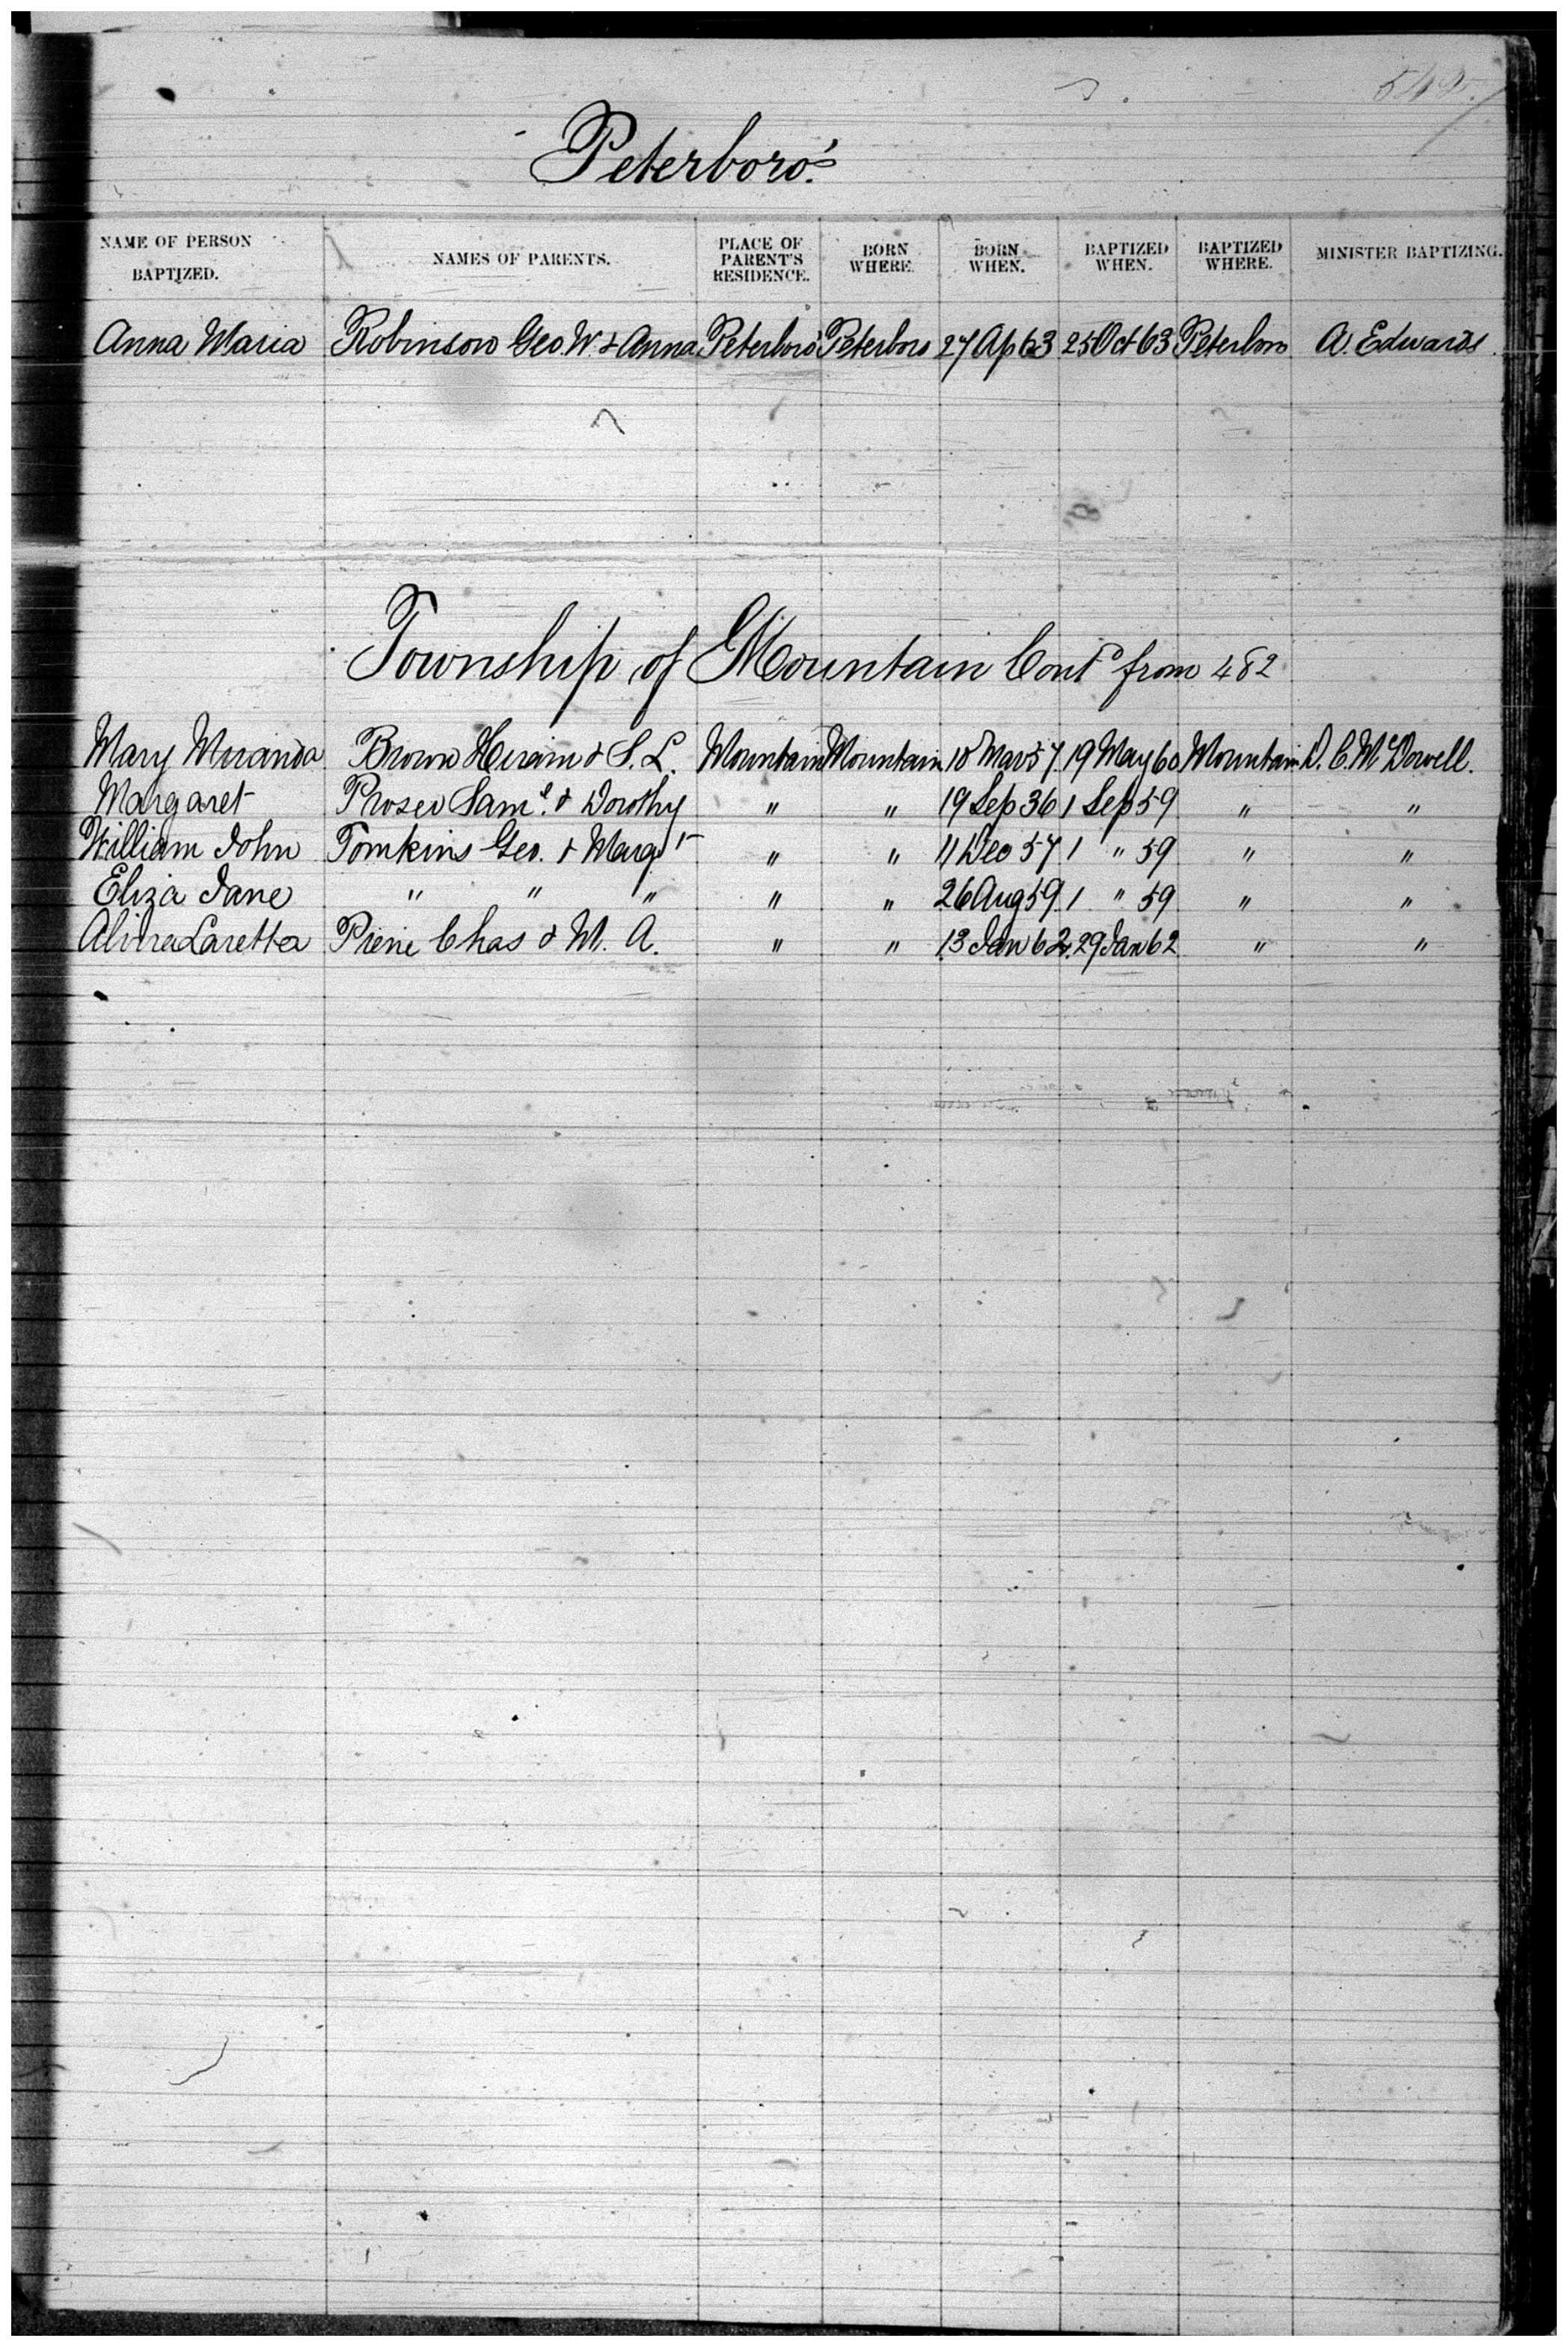 Peterboro'.
NAME OF PERSON BAPTIZED. NAMES OF PARENTS. PLACE OF PARENT'S RESIDENCE. BORN WHERE. BORN WHEN. BAPTIZED WHEN. BAPTIZED WHERE. MINISTER BAPTIZING.
Anna Maria Robinson Geo. W. & Anna Peterboro' Peterboro 27 Ap 63 25 Oct 63 Peterboro A. Edwards
Township of Mountain Cont^d from 482
Mary Miranda Brown Hiram & S. L. Mountain Mountain 18 Mar 57 19 May 60 Mountain D. C. McDowell.
Margaret Proser Sam^l. & Dorothy " " 19 Sep 36 1 Sep 59 " "
William John Tomkins Geo. & Marg^t " " 11 Dec 57 1 " 59 " "
Eliza Jane " " " " " 26 Aug 59 1 " 59 " "
Laretta Chas & M. A. " " 13 Jan 62 29 Jan 62 " "